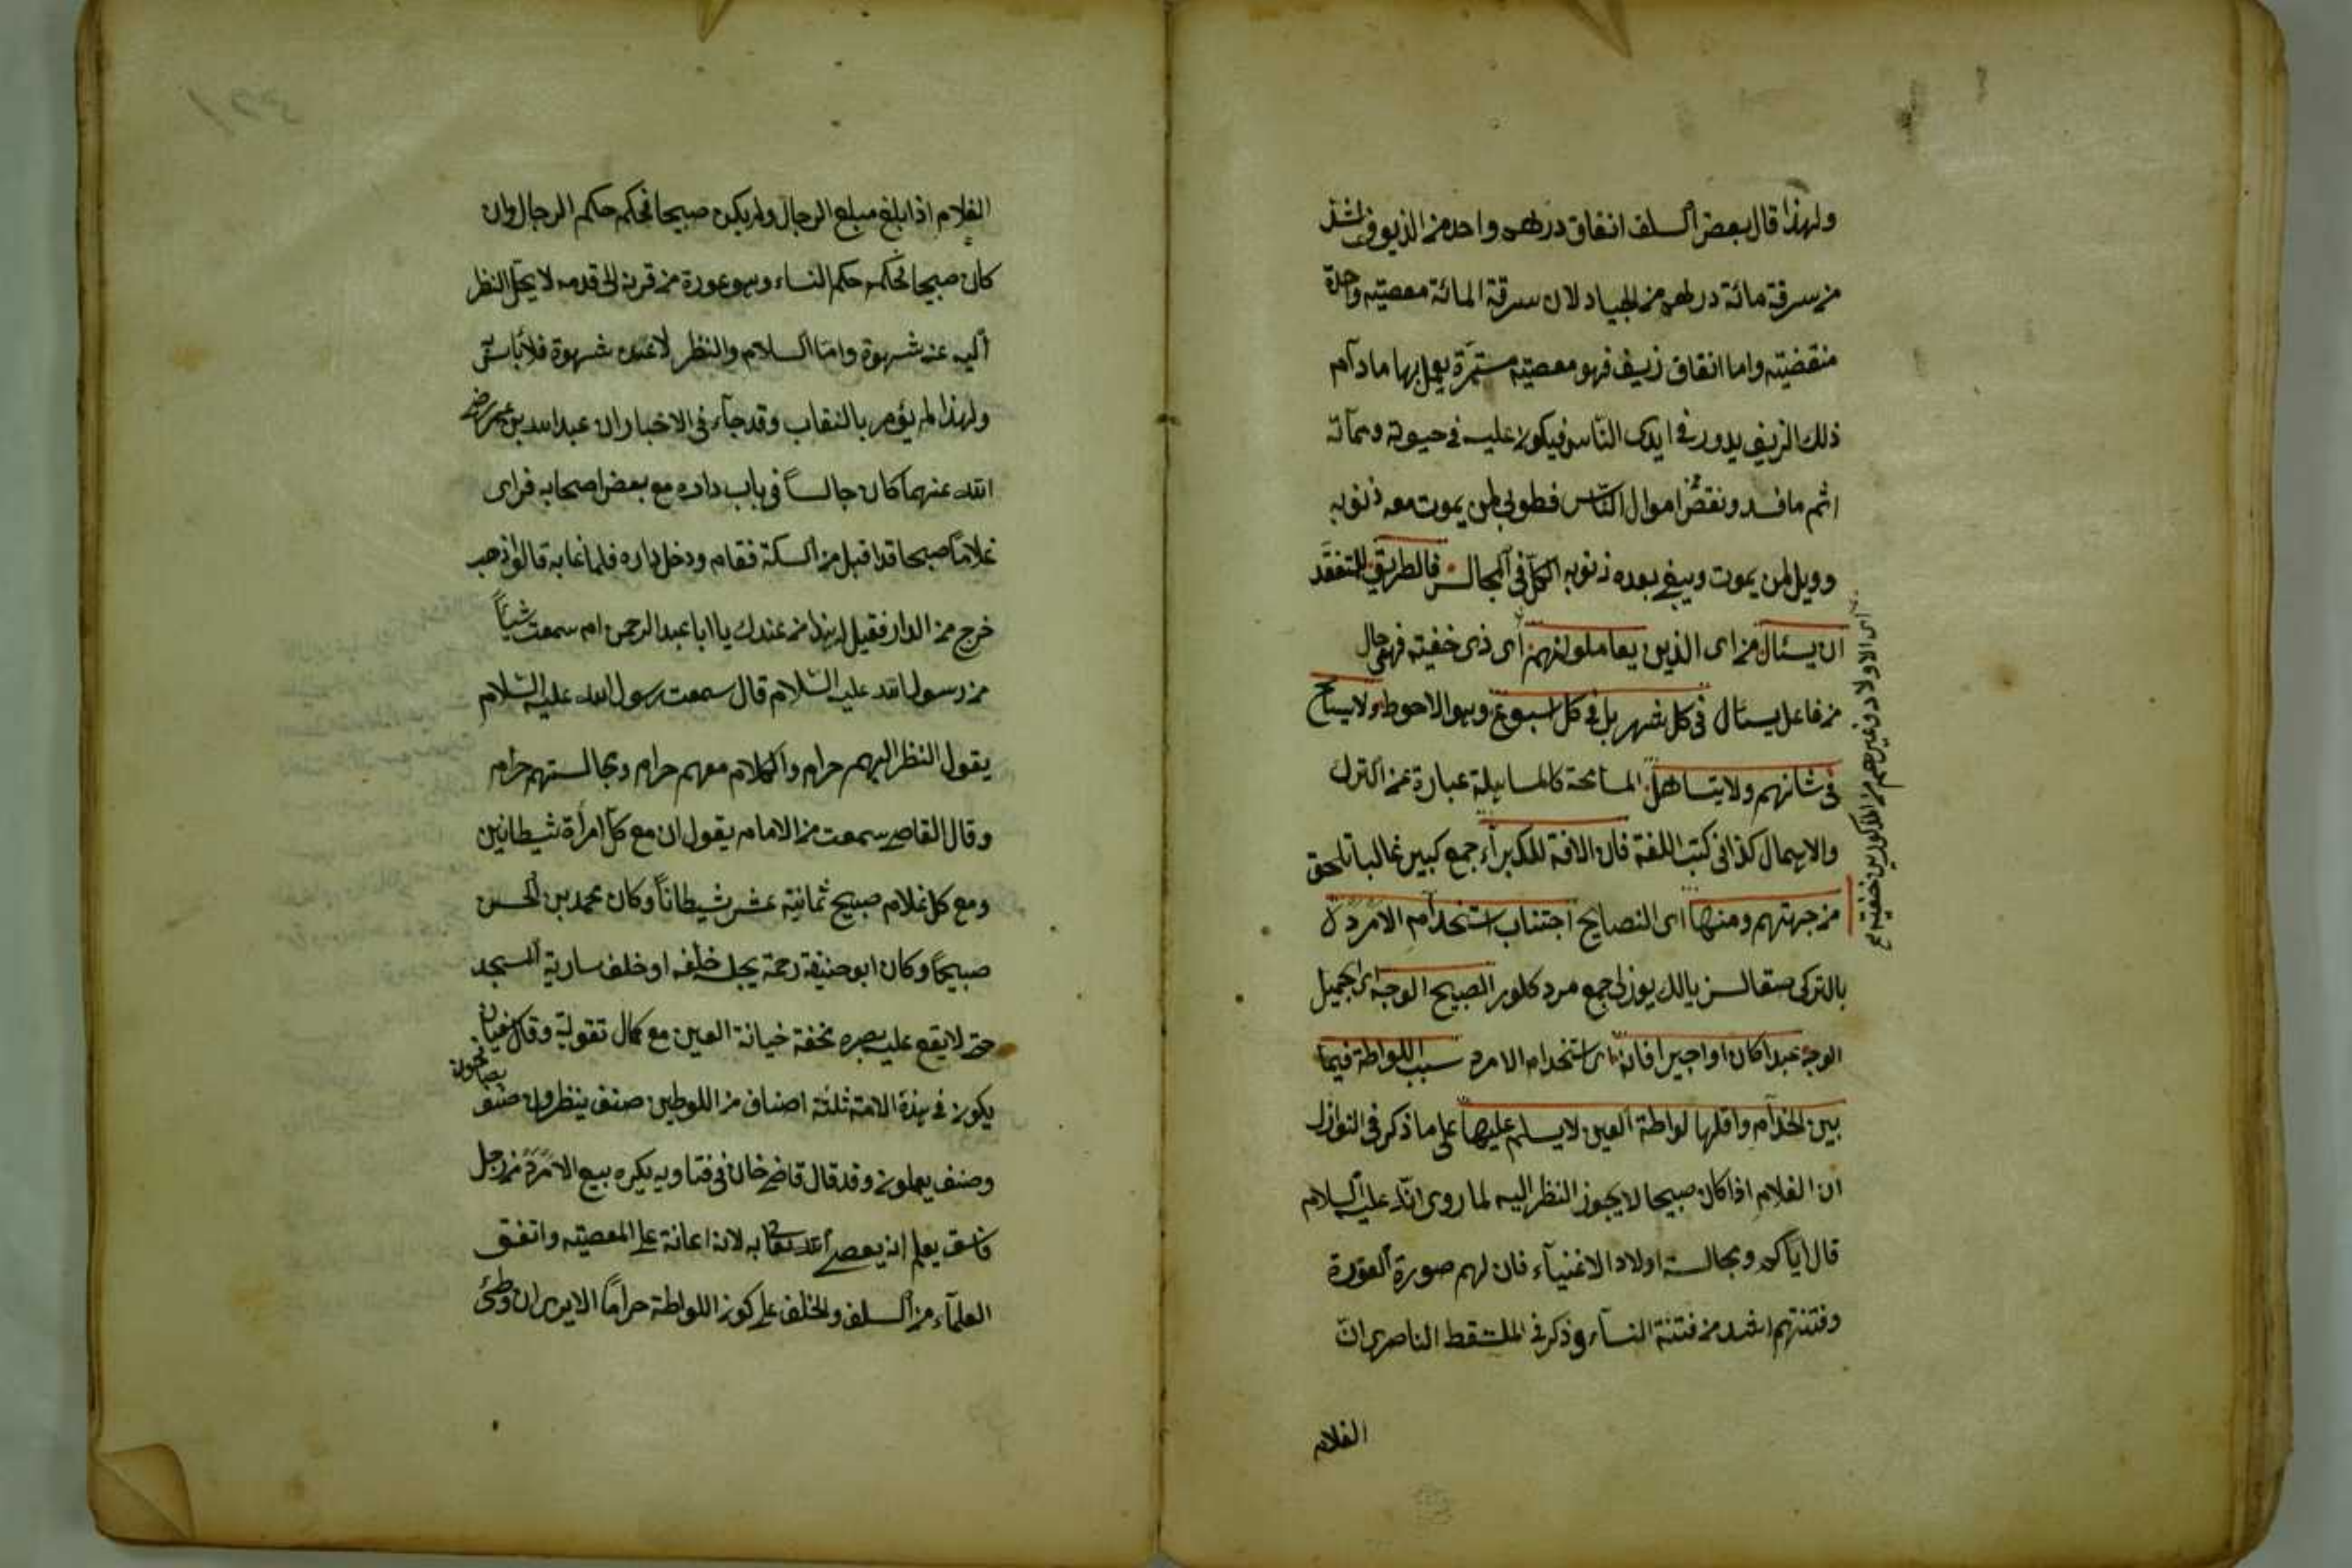 ولهذا قال بعض السلف انفاق درهم واحد من الذيوف اشد
من سرقة مائة درهم من الجياد لان سرقة المائة معصيته واحدة
منقضيته واما انفاق زيف فهو معصيته مستمرة يعمل بها مادام
ذلك الزيف يدور فى ايدى الناس فيكون عليه فى حيوته ومماته
اثم ما فسد ونقص اموال الناس فطوبى لمن يموت معه ذنوبه
وويل لمن يموت ويبقى بعده ذنوبه الكل فى المجالس فالطريق للتفقد
ان يسئال من اى الذين يعاملونهم اى ذى خفيته فهى حال
من فاعل يسئال فى كل شهر بل فى كل اسبوع وهو الاحوط ولا يسامح
فى شانهم ولا يتساهل المسامحة كالمساهلة عبارة عن الترك
والاهمال كذا فى كتب اللغة فان الافة للكبراء جمع كبير غالبا تلحق
من جهتهم ومنها اى النصايح اجتناب استخدام الامرد
بالتركى صقالسز يالك يوزلى جمع مرد كلور الصبيح الوجه اى الجميل
الوجه عبدا كان او اجيرا فانه اى استخدام الامرد سبب اللواطة فيما
بين الخدام واقلها لواطة العين لا يسلم عليها على ما ذكر فى النوازل
ان الغلام اذا كان صبيحا لا يجوز النظر اليه لما روى انه عليه السلام
قال اياكم ومجالسة اولاد الاغنياء فان لهم صورة العورة
وفتنتهم اشد من فتنة النساء وذكر فى الملتقط الناصرى ان
الغلام
اى الاولاد وغيرهم من المذكورين خفيته
الغلام اذا بلغ مبلغ الرجال ولم يكن صبيحا فحكمه حكم الرجال وان
كان صبيحا فحكمه حكم النساء وهو عورة من قرنه الى قدمه لا يحل النظر
اليه عن شهوة واما السلام والنظر لا عن شهوة فلا بأس به
ولهذا لم يؤمر بالنقاب وقد جاء فى الاخبار ان عبد الله بن عمر رضى
الله عنهما كان جالسا فى باب داره مع بعض اصحابه فراى
غلاما صبيحا قد اقبل من السكة فقام ودخل داره فلما غاب قالوا ذهب
خرج من الدار فقيل له هذا من عندك يا ابا عبد الرحمن ام سمعت شيأ
من رسول الله عليه السلام قال سمعت رسول الله عليه السلام
يقول النظر اليهم حرام والكلام معهم حرام ومجالستهم حرام
وقال القاضى سمعت من الامام يقول ان مع كل امرأة شيطانين
ومع كل غلام صبيح ثمانية عشر شيطانا وكان محمد بن الحسن
صبيحا وكان ابو حنيفة رحمه يجلسه خلفه او خلف سارية المسجد
حتى لا يقع عليه بصره مخفة خيانة العين مع كمال تقوية وقال سفيان
يكون فى هذة الامة ثلثة اصناف من اللوطين صنف ينظرون وصنف
يصافحون
وصنف يعملون وقد قال قاضى خان فى فتاويه يكره بيع الامرد من رجل
فاسق يعلم انه يعصى الله تعالى به لانه اعانة على المعصيته واتفق
العلماء من السلف والخلف على كون اللواطة حراما الا يرى ان وطئ